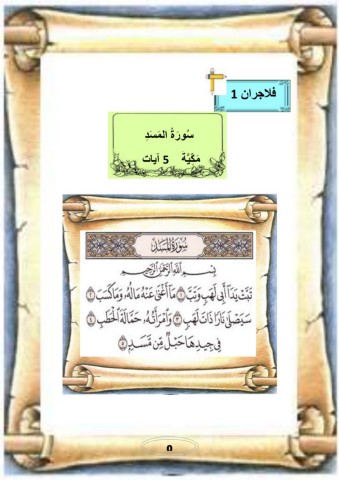 فلاجران 1
سُورَةُ المَسَدِ
مَكِّيَّة 5 آيات
سُورَةُ المَسَدِ
بِسْمِ اللَّهِ الرَّحْمَٰنِ الرَّحِيمِ
تَبَّتْ يَدَا أَبِي لَهَبٍ وَتَبَّ ١ مَا أَغْنَىٰ عَنْهُ مَالُهُ وَمَا كَسَبَ ٢
سَيَصْلَىٰ نَارًا ذَاتَ لَهَبٍ ٣ وَامْرَأَتُهُ حَمَّالَةَ الْحَطَبِ ٤
فِي جِيدِهَا حَبْلٌ مِّن مَّسَدٍ ٥
٥